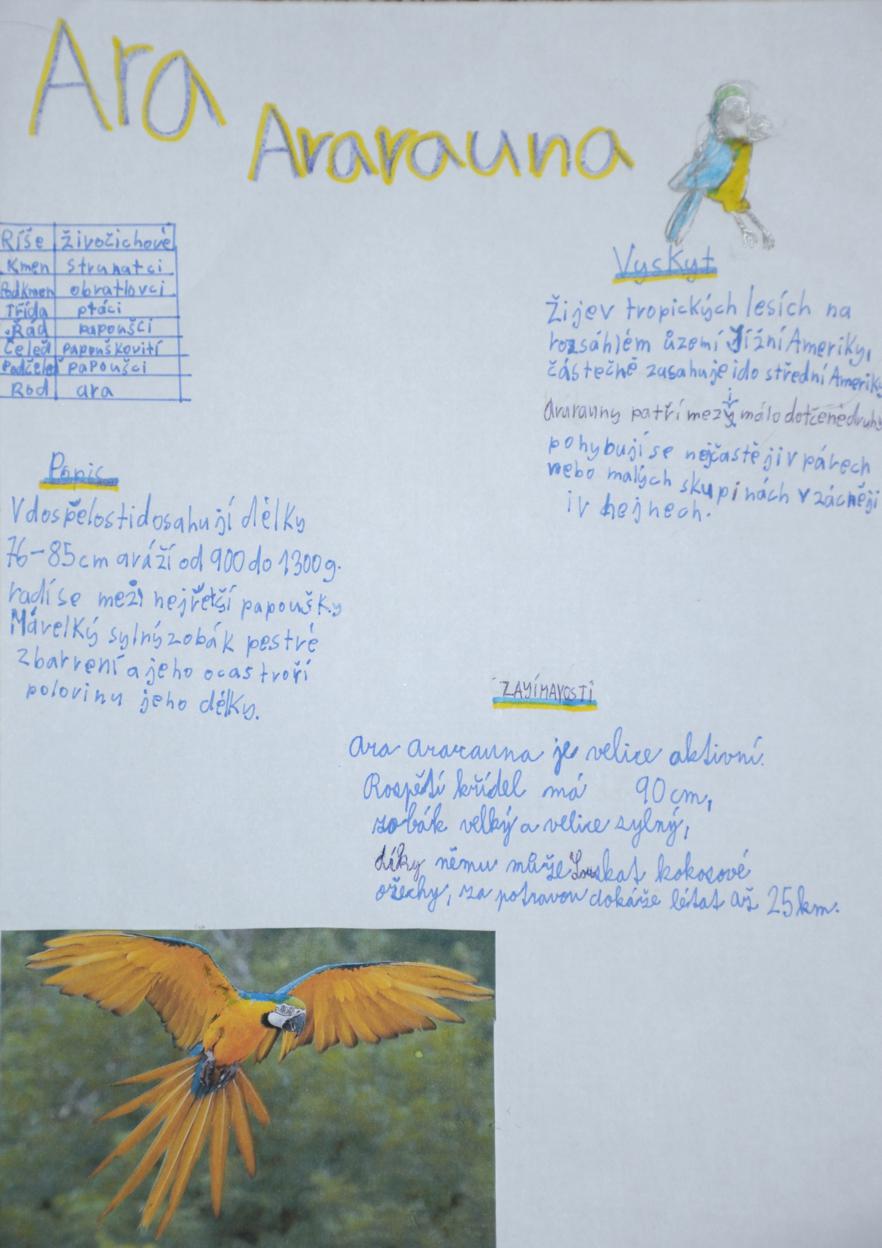 Ara
Ararauna
Ríše živočichové
Kmen strunatci
Podkmen obratlovci
Třída ptáci
Řád papoušci
Čeleď papouškovití
Podčeleď papoušci
Rod ara
Vyskyt
Žijev tropických lesích na
rozsáhlém území Jížní Ameriky,
částečně zasahuje ido střední Ameriky
Ararauny patří mezi málo dotčené druhy
pohybují se nejčastěji v párech
nebo malých skupinách vzácněji
i v hejnech.
Popis
V dospělosti dosahují délky
76-85cm aváží od 900 do 1300g.
radí se mezi největší papoušky
Mávelký sylný zobák pestré
zbarvení a jeho ocas tvoří
polovinu jeho délky.
ZAJÍMAVOSTI
Ara ararauna je velice aktivní.
Rospětí křídel má 90cm,
zobák velký a velice sylný,
díky němu může Louskat kokosové
ořechy, za potravou dokáže létat až 25km.